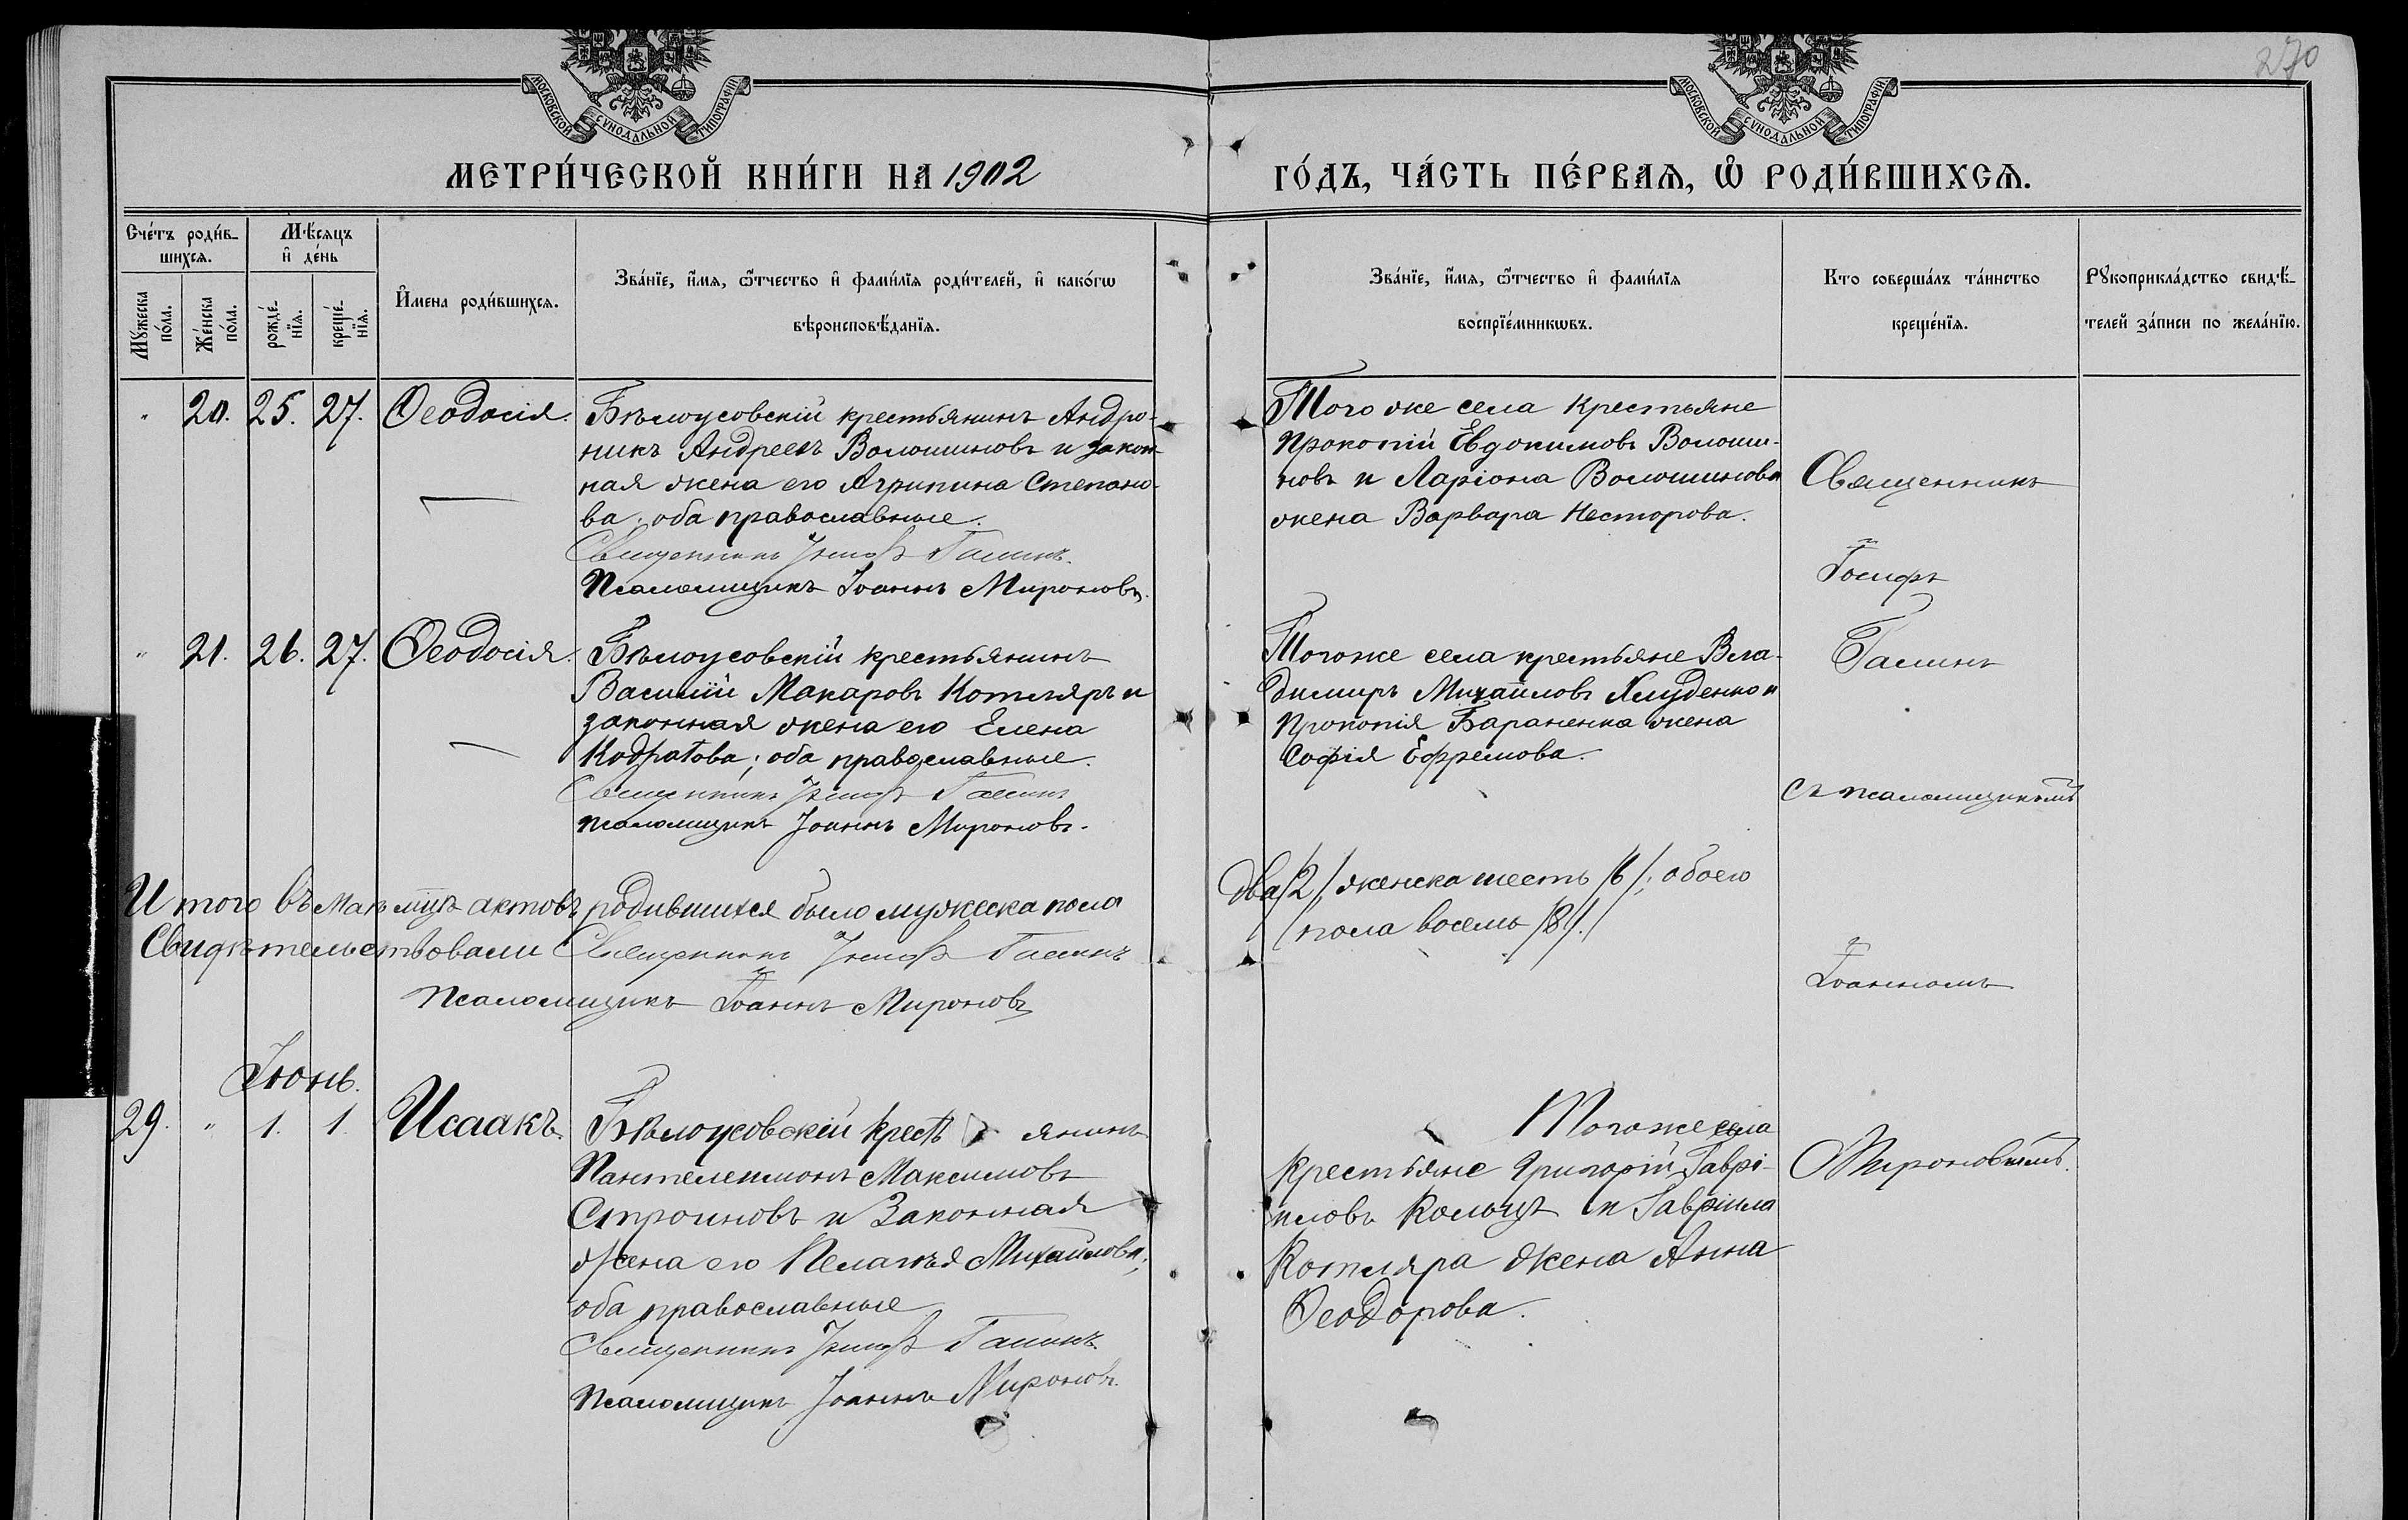 270
МОСКОВСКОЙ СѴНОДАЛЬНОЙ ТИПОГРАФІИ
МОСКОВСКОЙ СѴНОДАЛЬНОЙ ТИПОГРАФІИ
МЕТРИ́ЧЕСКОЙ КНИ́ГИ НА 1902
ГО́ДЪ, ЧА́СТЬ ПЕ́РВАѦ, Ѽ РОДИ́ВШИХСѦ.
Сче́тъ роди́в-
шихсѧ.
Мѣ́сѧцъ
и҆ де́нь
Мꙋжеска
по́ла.
Же́нска
по́ла.
рожде́-
нїѧ.
креще́-
нїѧ.
И҆мена роди́вшихсѧ.
Зва́нїе, и҆́мѧ, ѻ҆́тчество и҆ фами́лїѧ роди́телей, и҆ како́гѡ
вѣроисповѣ́данїѧ.
Зва́нїе, и҆́мѧ, ѻ҆́тчество и҆ фами́лїѧ
воспрїе́мникѡвъ.
Кто соверша́лъ та́инство
креще́нїѧ.
Рꙋкоприкла́дство свидѣ́-
телей за́писи по жела́нїю.
" 20. 25. 27. Ѳеодосія.
Бѣлоусовскій крестьянинъ Андро-
никъ Андреевъ Волошиновъ и закон-
ная жена его Агрипина Степано-
ва; оба православные.
Священникъ Іосифъ Галинъ.
Псаломщикъ Іоаннъ Мироновъ.
Того же села крестьяне
Прокопій Евдокимовъ Волоши-
новъ и Ларіона Волошинова
жена Варвара Несторова.
Священникъ
Іосифъ
Галинъ
съ псаломщикомъ
Іоанномъ
Мироновымъ.
" 21. 26. 27. Ѳеодосія.
Бѣлоусовскій крестьянинъ
Василій Макаровъ Котляръ и
законная жена его Елена
Кодратова; оба православные.
Священникъ Іосифъ Галинъ
псаломщикъ Іоаннъ Мироновъ.
Тогоже села крестьяне Вла-
димиръ Михайловъ Хлуденко и
Прокопія Бараненка жена
Софія Ефремова.
Итого въ маѣ мцѣ актовъ родившихся было мужеска пола
два /2/ женска шесть /6/; обоего
пола восемь /8/.
Свидѣтельствовали Священникъ Іосифъ Галинъ
Псаломщикъ Іоаннъ Мироновъ
Іюнь.
29. " 1. 1. Исаакъ.
Бѣлоусовскій крестьянинъ
Пантелеимонъ Максимовъ
Строиновъ и Законная
жена его Пелагея Михайлова;
оба православные
Священникъ Іосифъ Галинъ
Псаломщикъ Іоаннъ Мироновъ.
Тогоже села
крестьяне Григорій Гаврі-
иловъ Кольцъ и Гавріила
Котляра жена Анна
Ѳеодорова.